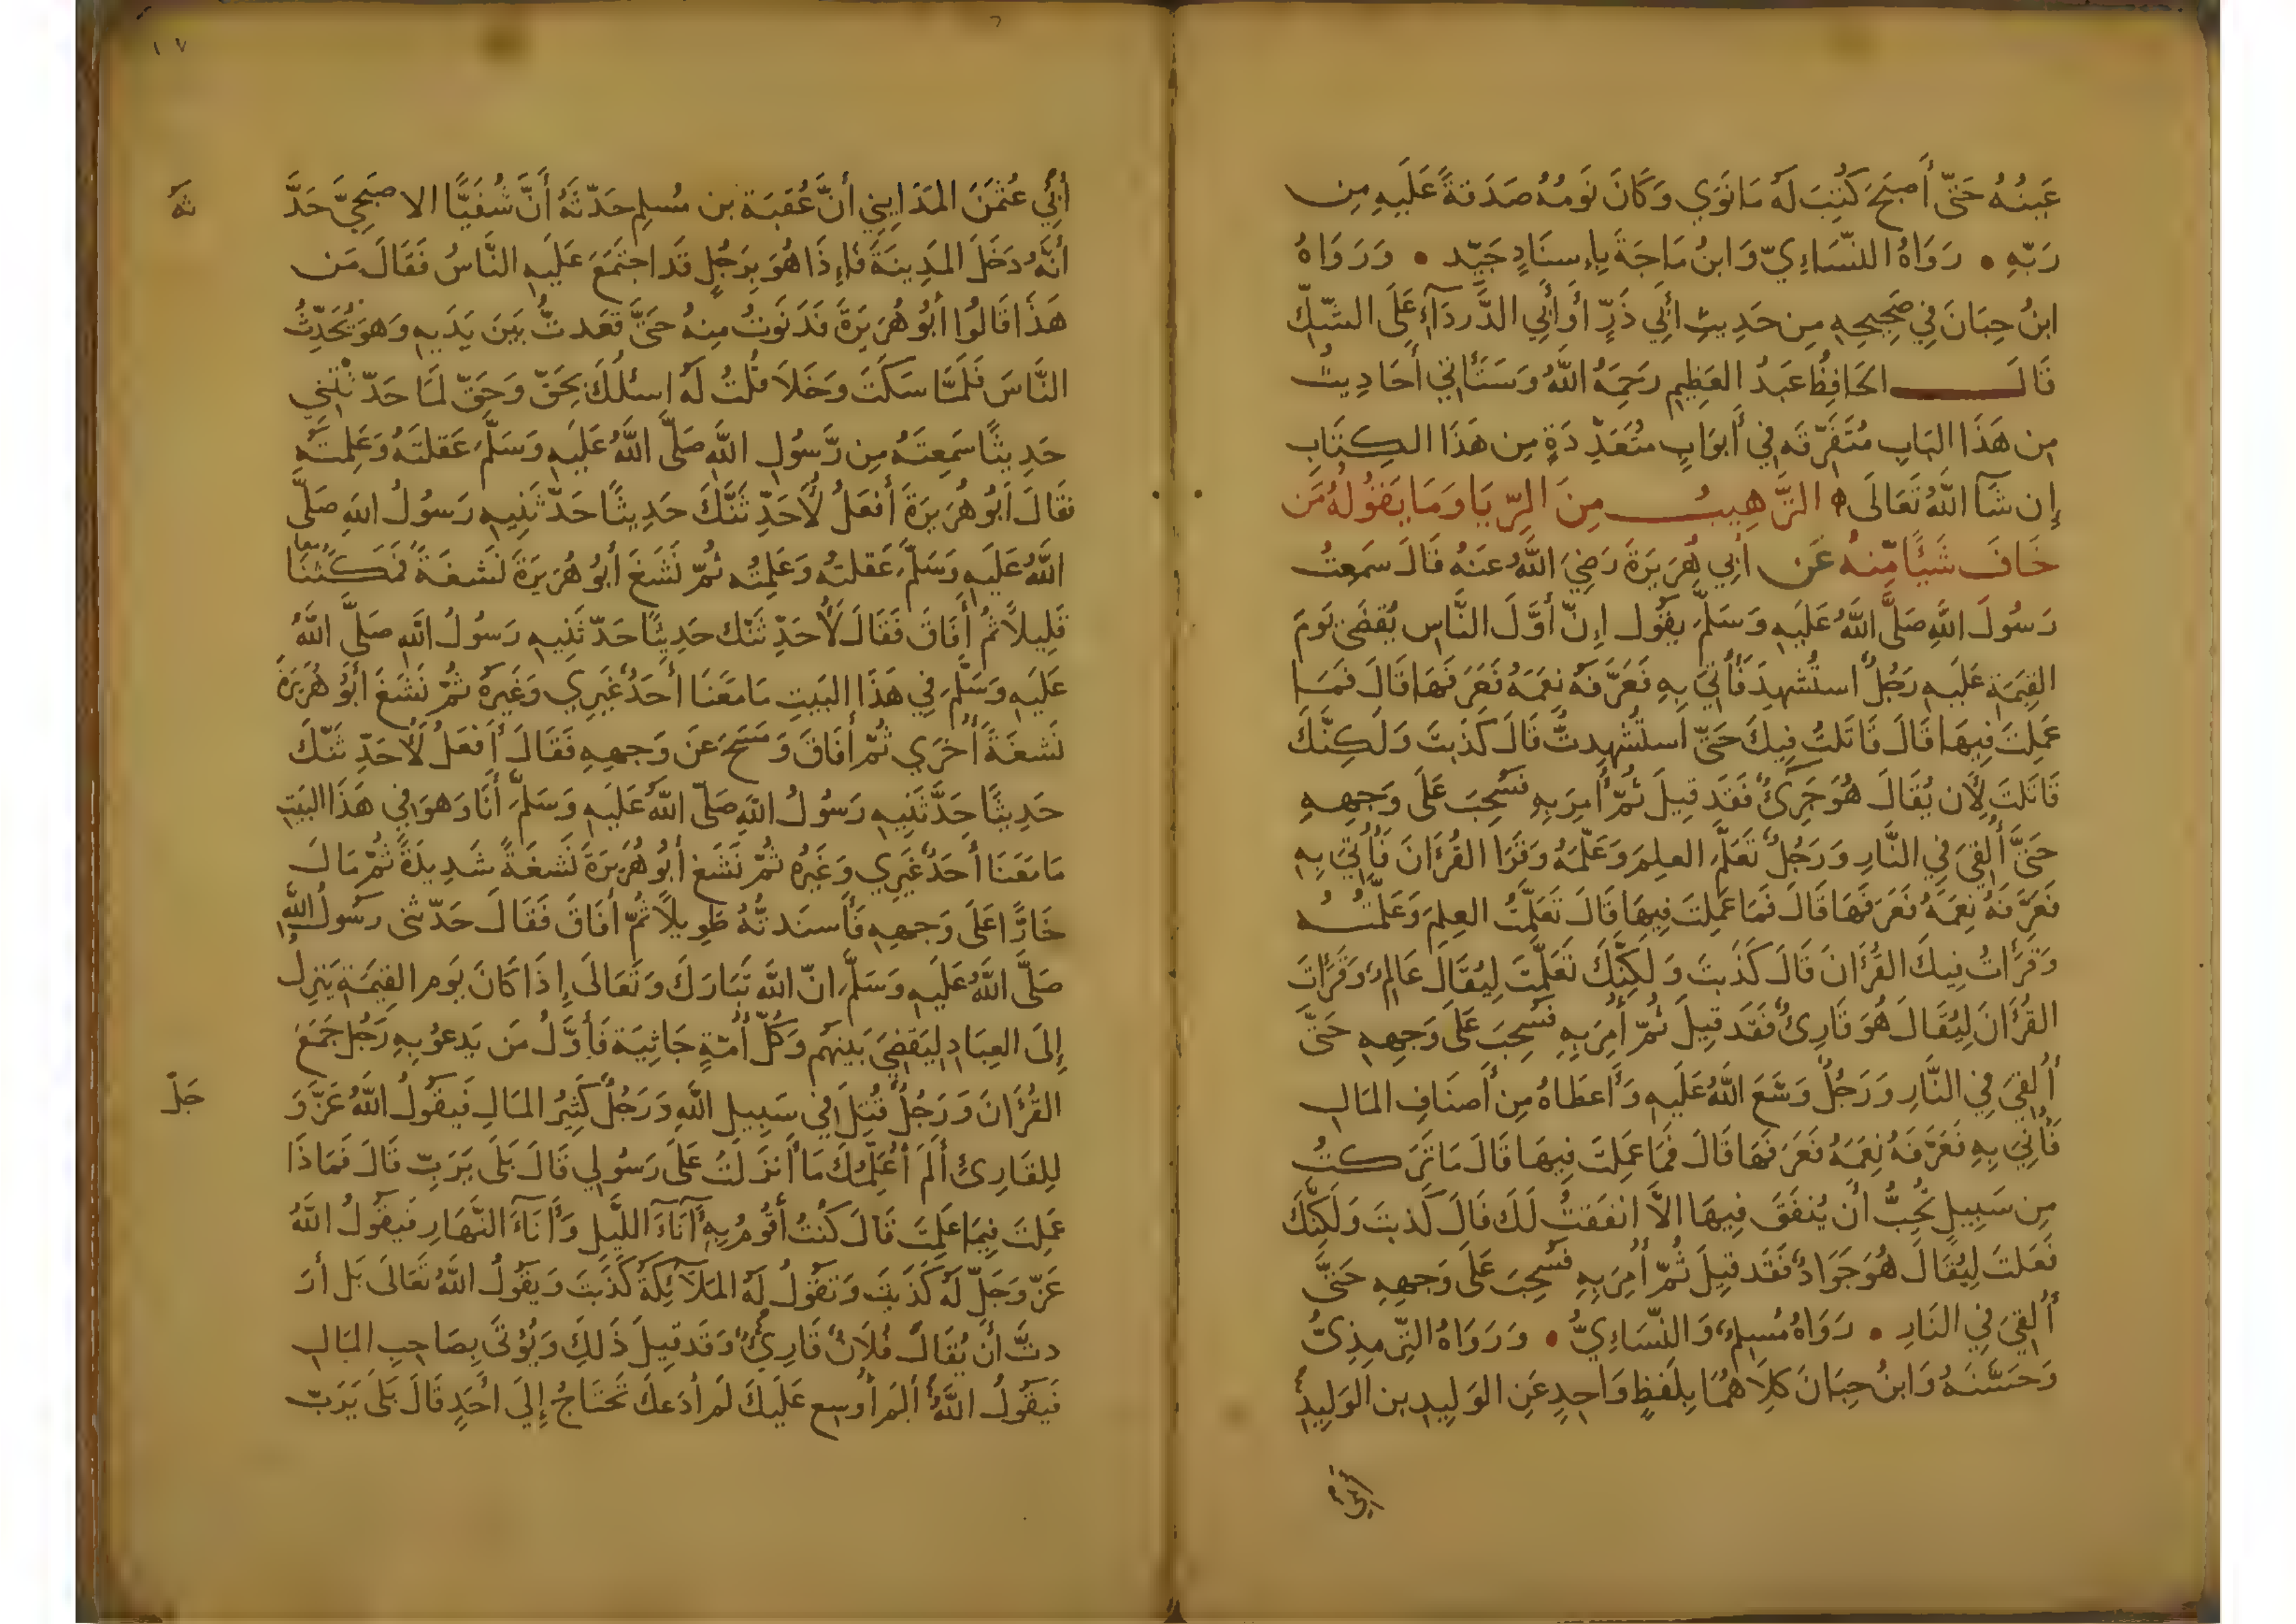 عَينُهُ حَتَّى أَصبَحَ كُتِبَ لَهُ مَا نَوَي وَكَانَ نَومُهُ صَدَقَةً عَلَيهِ مِن
رَبِّهِ • رَوَاهُ النَّسَاءِيّ وَابنُ مَاجَةَ بِاِسنَادٍ جَيِّد • وَرَوَاهُ
ابنُ حِبَانَ فِي صَحِيحِهِ مِن حَدِيثِ أَبِي ذَرٍّ أَو أَبِي الدَّردَآءِ عَلَى الشَّكِّ
قَالَ الحَافِظُ عَبدُ العَظِيمِ رَحِمَهُ اللَّهُ وَسَتَأتِي أَحَادِيثُ
مِن هَذَا البَابِ مُتَفَرِّقَه فِي أَبوَابٍ مُتَعَدِّدَةٍ مِن هَذَا الكِتَابِ
إِن شَآ اللَّهُ تَعَالَى ه التَّرهِيبُ مِنَ الرِّيَا وَمَا يَقُولُهُ مَن
خَافَ شَيًا مِّنهُ عَن أَبِي هُرَيرَةَ رَضِيَ اللَّهُ عَنهُ قَالَ سَمِعتُ
رَسُولَ اللَّهِ صَلَّى اللَّهُ عَلَيهِ وَسَلَّمَ يقُول اِنّ أَوَّلَ النَّاسِ يُقضَى يَومَ
القِيَمَةِ عَلَيهِ رَجُلٌ استُشهِدَ فَأُتِيَ بِهِ فَعَرَّفَهُ نِعَمَهُ فَعَرَفَهَا قَالَ فَمَا
عَمِلتَ فِيهَا قَالَ قَاتَلتُ فِيكَ حَتّى استُشهِدتُّ قَالَ كَذَبتَ وَلَكِنَّكَ
قَاتَلتَ لِأَن يُقَالَ هُوَ جَرِيٌ فَقَد قِيلَ ثُمّ أُمِرَ بِهِ فَسُحِبَ عَلَى وَجهِهِ
حَتَّى أُلقِيَ فِي النَّارِ وَرَجُلٌ تَعَلَّمَ العِلمَ وَعَلَّمَهُ وَقَرَا القُرَانَ فَأُتِيَ بِهِ
فَعَرَّفَهُ نِعَمَهُ فَعَرَفَهَا قَالَ فَمَا عَمِلتَ فِيهَا قَالَ تَعَلَّمتُ العِلمَ وَعَلَّمتُهُ
وَقَرَأتُ فِيكَ القُرَانَ قَالَ كَذَبتَ وَلَكِنَّكَ تَعَلَّمتَ لِيُقَالَ عَالِمٌ وَقَرَأتَ
القُرَانَ لِيُقَالَ هُوَ قَارِئٌ فَقَد قِيلَ ثُمّ أُمِرَ بِهِ فَسُحِبَ عَلَى وَجهِهِ حَتَّى
أُلقِيَ فِي النَّارِ وَرَجُلٌ وَسَّعَ اللَّهُ عَلَيهِ وَأَعطَاهُ مِن أَصنَافِ المَالِ
فَأُتِيَ بِهِ فَعَرَّفَهُ نِعَمَهُ فَعَرَفَهَا قَالَ فَمَا عَمِلتَ فِيهَا قَالَ مَا تَرَكتُ
مِن سَبِيلٍ تُحِبُّ أَن يُنفَقَ فِيهَا الاَّ انفَقتُ لَكَ قَالَ كَذبتَ وَلَكِنَّكَ
فَعَلتَ لِيُقَالَ هُوَ جَوَادٌ فَقَد قِيلَ ثُمّ أُمِرَ بِهِ فَسُحِبَ عَلَى وَجهِهِ حَتَّى
أُلقِيَ فِي النَارِ • رَوَاهُ مُسلِمٌ وَالنَّسَاءِيُّ • وَرَوَاهُ التِّرمِذِيُّ
وَحَسَّنَهُ وَابنُ حِبَانَ كِلَاهُمَا بِلَفظٍ وَاحِدٍ عَنِ الوَلِيدِ بن الوَلِيدِ
١٧
أَبِي عُثمَنَ المَدَايِنِي أَنَّ عُقبَةَ بن مُسلِم حَدّثَهُ أَنَّ شُفَيًّا الاصبَحِيَّ حَدَّ
ثه
أَنَّهُ دَخَلَ المَدِينَةَ فَاِذَا هُوَ بِرَجُلٍ قَد اجتَمَعَ عَلَيهِ النَّاسُ فَقَالَ مَن
هَذَا قَالُوا أَبُو هُرَيرَةَ فَدَنَوتُ مِنهُ حَتَّى قَعَدتُّ بَينَ يَدَيهِ وَهوَ يُحَدِّثُ
النَّاسَ فَلَمَّا سَكَتَ وَخَلاَ قُلتُ لَهُ اسئَلُكَ بِحَقّ وَحَقّ لَمَا حَدّثتَنِي
حَدِيثًا سَمِعتَهُ مِن رَّسُولِ اللَّهِ صَلَّى اللَّهُ عَلَيهِ وَسَلَّمَ عَقَلتَهُ وَعَلِمتَهُ
فقَالَ أَبُو هُرَيرَةَ أَفعَلُ لَأُحَدِّثَنَّكَ حَدِيثًا حَدَّثَنِيهِ رَسُولُ اللهِ صَلَّى
اللَّهُ عَلَيهِ وَسَلَّمَ عَقَلتُهُ وَعَلِمتُه ثُمّ نَشَغَ أَبُو هُرَيرَةَ نَشغَةً فَمَكَثنَا
قَلِيلاً ثُم أَفَاقَ فَقَالَ لَأُحَدِّثَنّك حَدِيثًا حَدّثَنِيهِ رَسُولُ اللَّهِ صَلَّى اللَّهُ
عَلَيهِ وَسَلَّمَ فِي هَذَا البَيتِ مَا مَعَنَا أَحَدٌ غَيرِي وَغَيرهُ ثُمّ نَشَغَ أَبُو هُرَيرَةَ
نَشغَةً أُخرَي ثُمّ أَفَاقَ وَمَسَحَ عَن وَجهِهِ فَقَالَ أَفعَلُ لَأُحَدِّثَنّكَ
حَدِيثًا حَدَّثَنِيهِ رَسُولُ اللَّهِ صَلّى اللَّهُ عَلَيهِ وَسَلَّمَ أَنَا وَهوَ فِي هَذَا البَيتِ
مَا مَعَنَا أَحَدٌ غَيرِي وَغَيرُه ثُمّ نَشَغ أَبُو هُرَيرَةَ نَشغَةً شَدِيدَةً ثُمّ مَالَ
خَارًّا عَلَى وَجهِهِ فَأَسنَدتُّهُ طَوِيلاً ثُمّ أَفَاقَ فَقَالَ حَدّثنى رسُولُ اللَّهِ
صَلَّى اللَّهُ عَلَيهِ وَسَلَّمَ انّ اللَّهَ تَبَارَكَ وَتَعَالَى إِذَا كَانَ يَوم القِيَمَةِ يَنزِلُ
إِلَى العِبَادِ لِيَقضِيَ بَينهُم وَكُلّ أُمّةٍ جَاثِيَة فَأَوَّلُ مَن يَدعُو بِهِ رَجُلٌ جَمَعَ
القُرَانَ وَرَجُلٌ قُتِلَ فِي سَبِيلِ اللَّهِ وَرَجُلٌ كَثِيرُ المَالِ فَيَقُولُ اللَّهُ عَزَّ وَ
جَلّ
لِلقَارِئِ أَلَم أُعَلِّمكَ مَا أَنزَلتُ عَلَى رَسُولِي قَالَ بَلَى يَرَبِّ قَالَ فَمَاذَا
عَمِلتَ فِيمَا عَلِمتَ قَالَ كُنتُ أَقُومُ بِهِ آنَاءَ اللَّيلِ وَأَنَاءَ النَّهَارِ فَيقُولُ اللَّهُ
عَزّ وَجَلّ لَهُ كَذَبتَ وَتقُولُ لَهُ المَلآئِكَةُ كَذَبتَ وَيقُولُ اللَّهُ تَعَالَى بَل أَرَ
دتَّ أَن يُقَالَ فُلَانٌ قَارِئٌ وَقَد قِيلَ ذَلِكَ وَيُؤتَى بِصَاحِبِ المَالِ
فَيَقُولُ اللَّهُ أَلَم أُوسِع عَلَيكَ لَم أَدَعكَ تَحتَاجُ إِلَى أَحَدٍ قَالَ بَلَى يَرَبّ